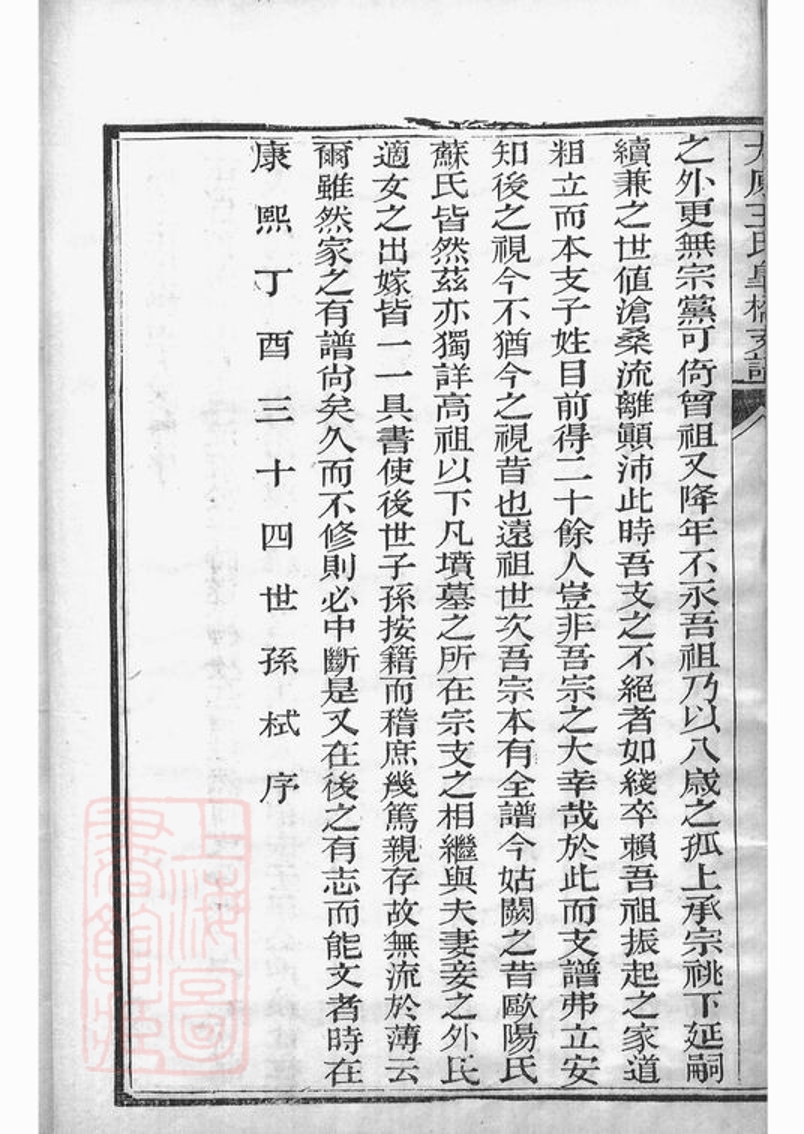 太原王氏皋橋支譜
之外更無宗黨可倚曾祖又降年不永吾祖乃以八歲之孤上承宗祧下延嗣
續兼之世值滄桑流離顚沛此時吾支之不絕者如綫卒賴吾祖振起之家道
粗立而本支子姓目前得二十餘人豈非吾宗之大幸哉於此而支譜弗立安
知後之視今不猶今之視昔也遠祖世次吾宗本有全譜今姑闕之昔歐陽氏
蘇氏皆然茲亦獨詳高祖以下凡墳墓之所在宗支之相繼與夫妻妾之外氏
適女之出嫁皆一一具書使後世子孫按籍而稽庶幾篤親存故無流於薄云
爾雖然家之有譜尙矣久而不修則必中斷是又在後之有志而能文者時在
康熙丁酉三十四世孫栻序
上海圖書館藏